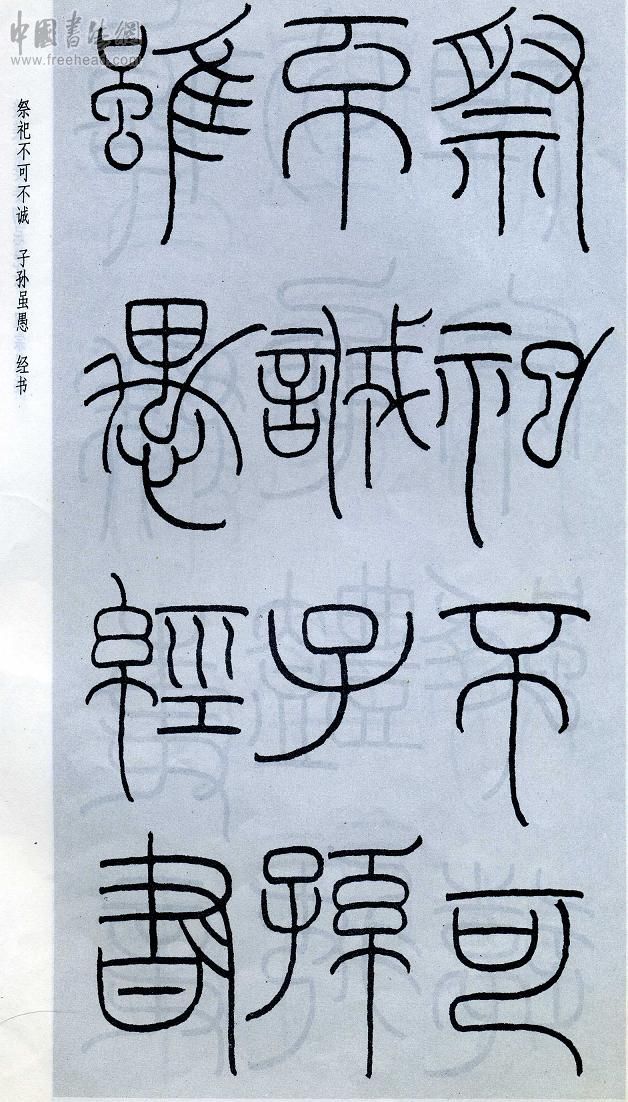 祭祀不可
不誠子孫
雖愚經書
祭祀不可不诚 子孙虽愚 经书
中國書法網
www.freehead.com